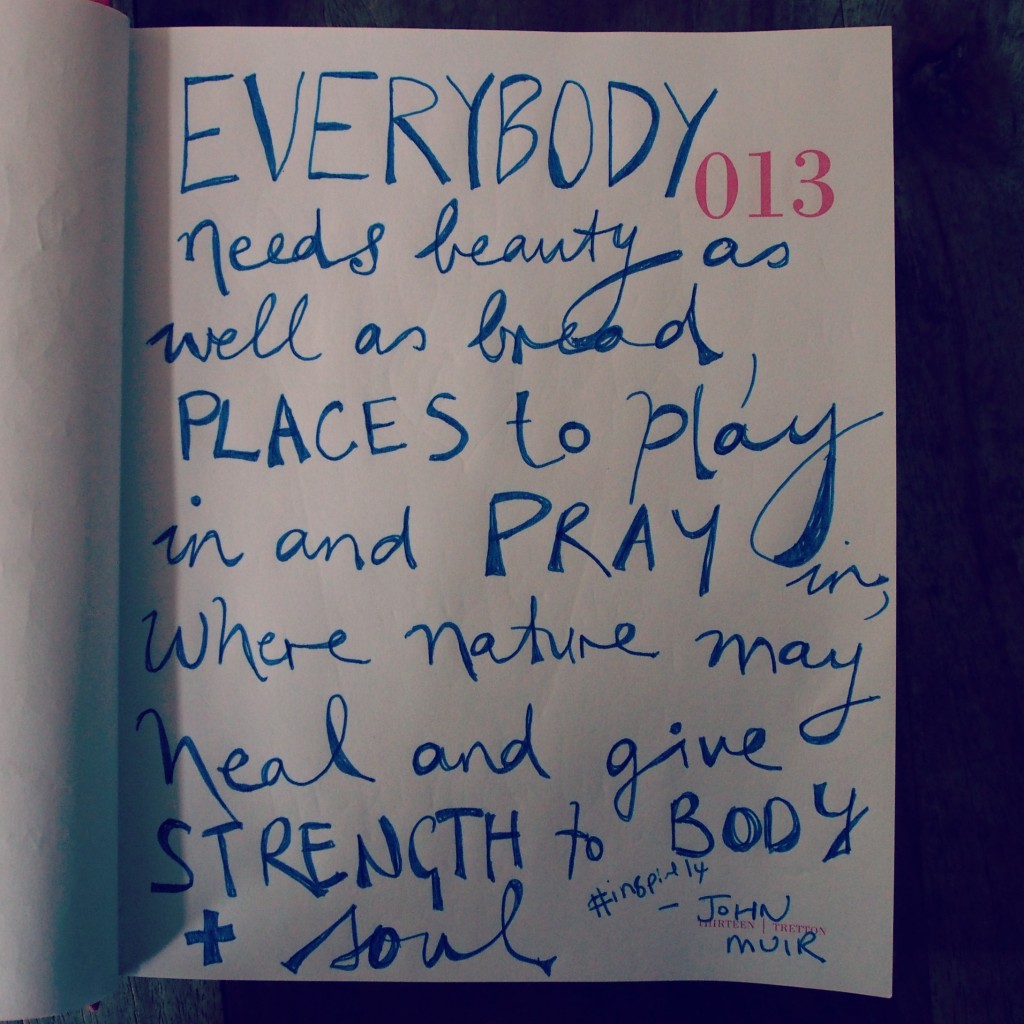 EVERYBODY
013
needs beauty as
well as bread,
PLACES to play
in and PRAY in,
where nature may
heal and give
STRENGTH to BODY
+ soul
#inspire14
- JOHN
THIRTEEN | TRETTON
MUIR